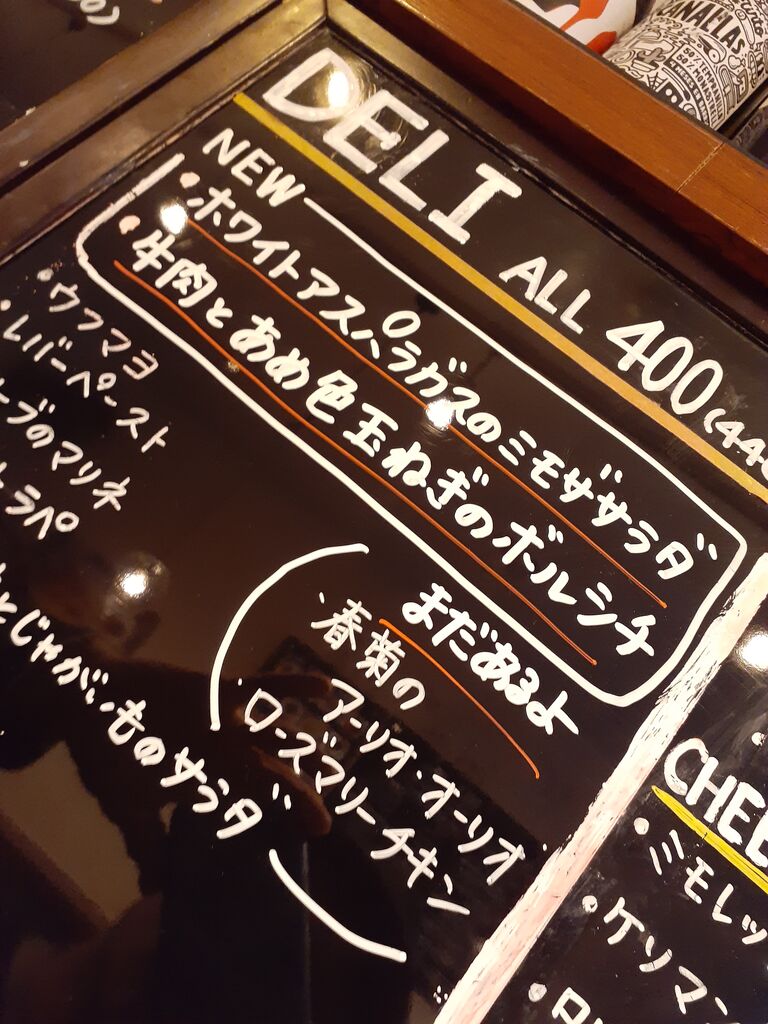 DELI ALL 400 (440
NEW
・ホワイトアスパラガスのミモザサラダ
・牛肉とあめ色玉ねぎのボルシチ
・ウフマヨ
・レバーペースト
ーブのマリネ
ラペ
とじゃがいものサラダ
まだあるよ
・春菊の
アーリオ・オーリオ
・ローズマリーチキン
CHEE
・ミモレッ
・ケソマン
ANALLAS